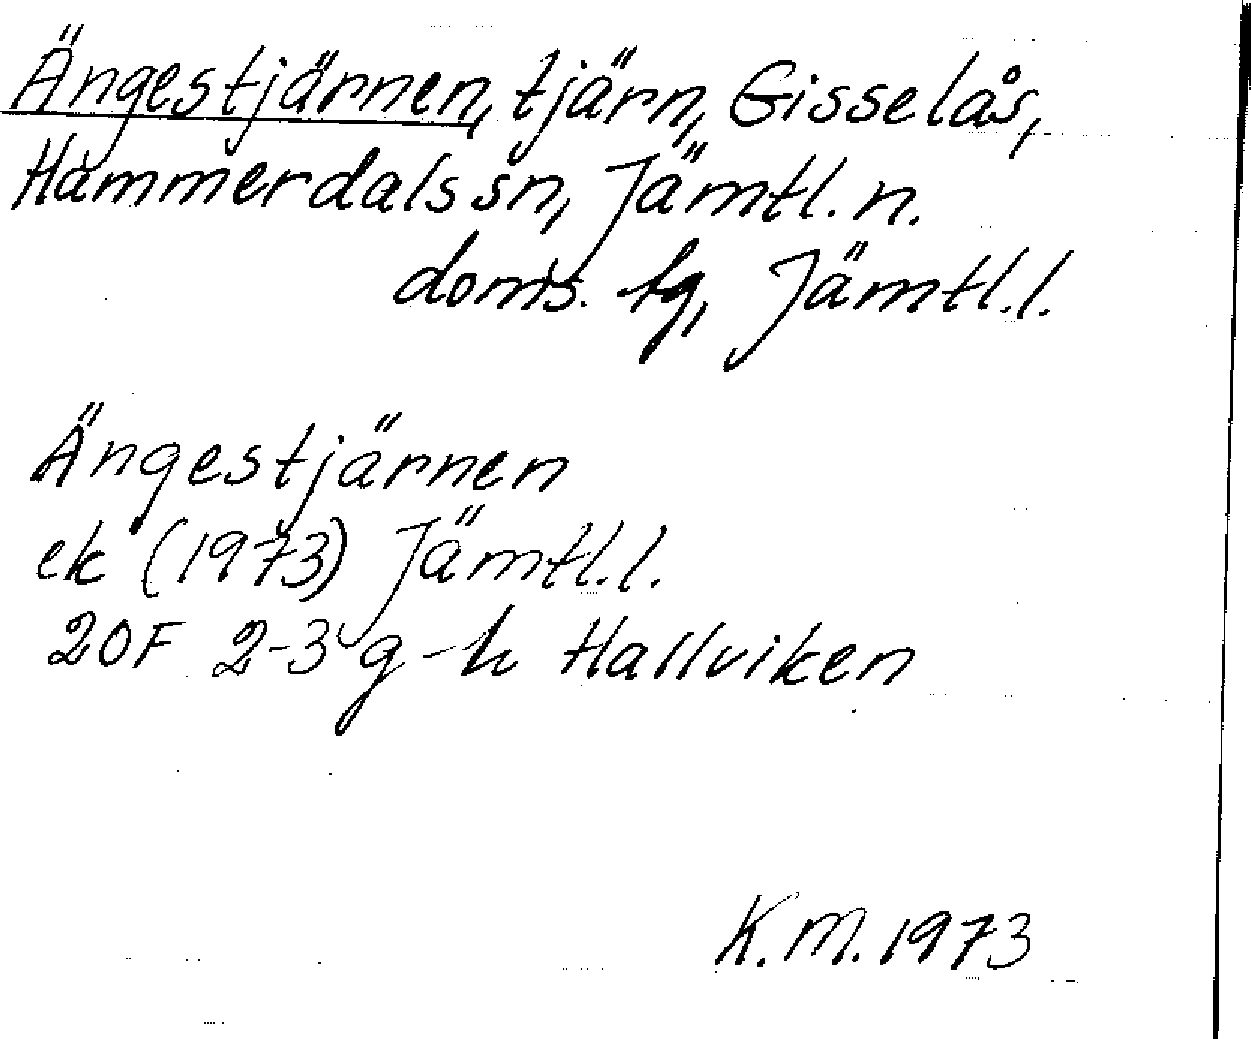 Ängestjärnen, tjärn, Gisselås,
Hammerdals sn, Jämtl. n.
doms. tg, Jämtl. l.
Ängestjärnen
ek (1973) Jämtl. l.
20F 2-3 g-h Hallviken
K.M. 1973